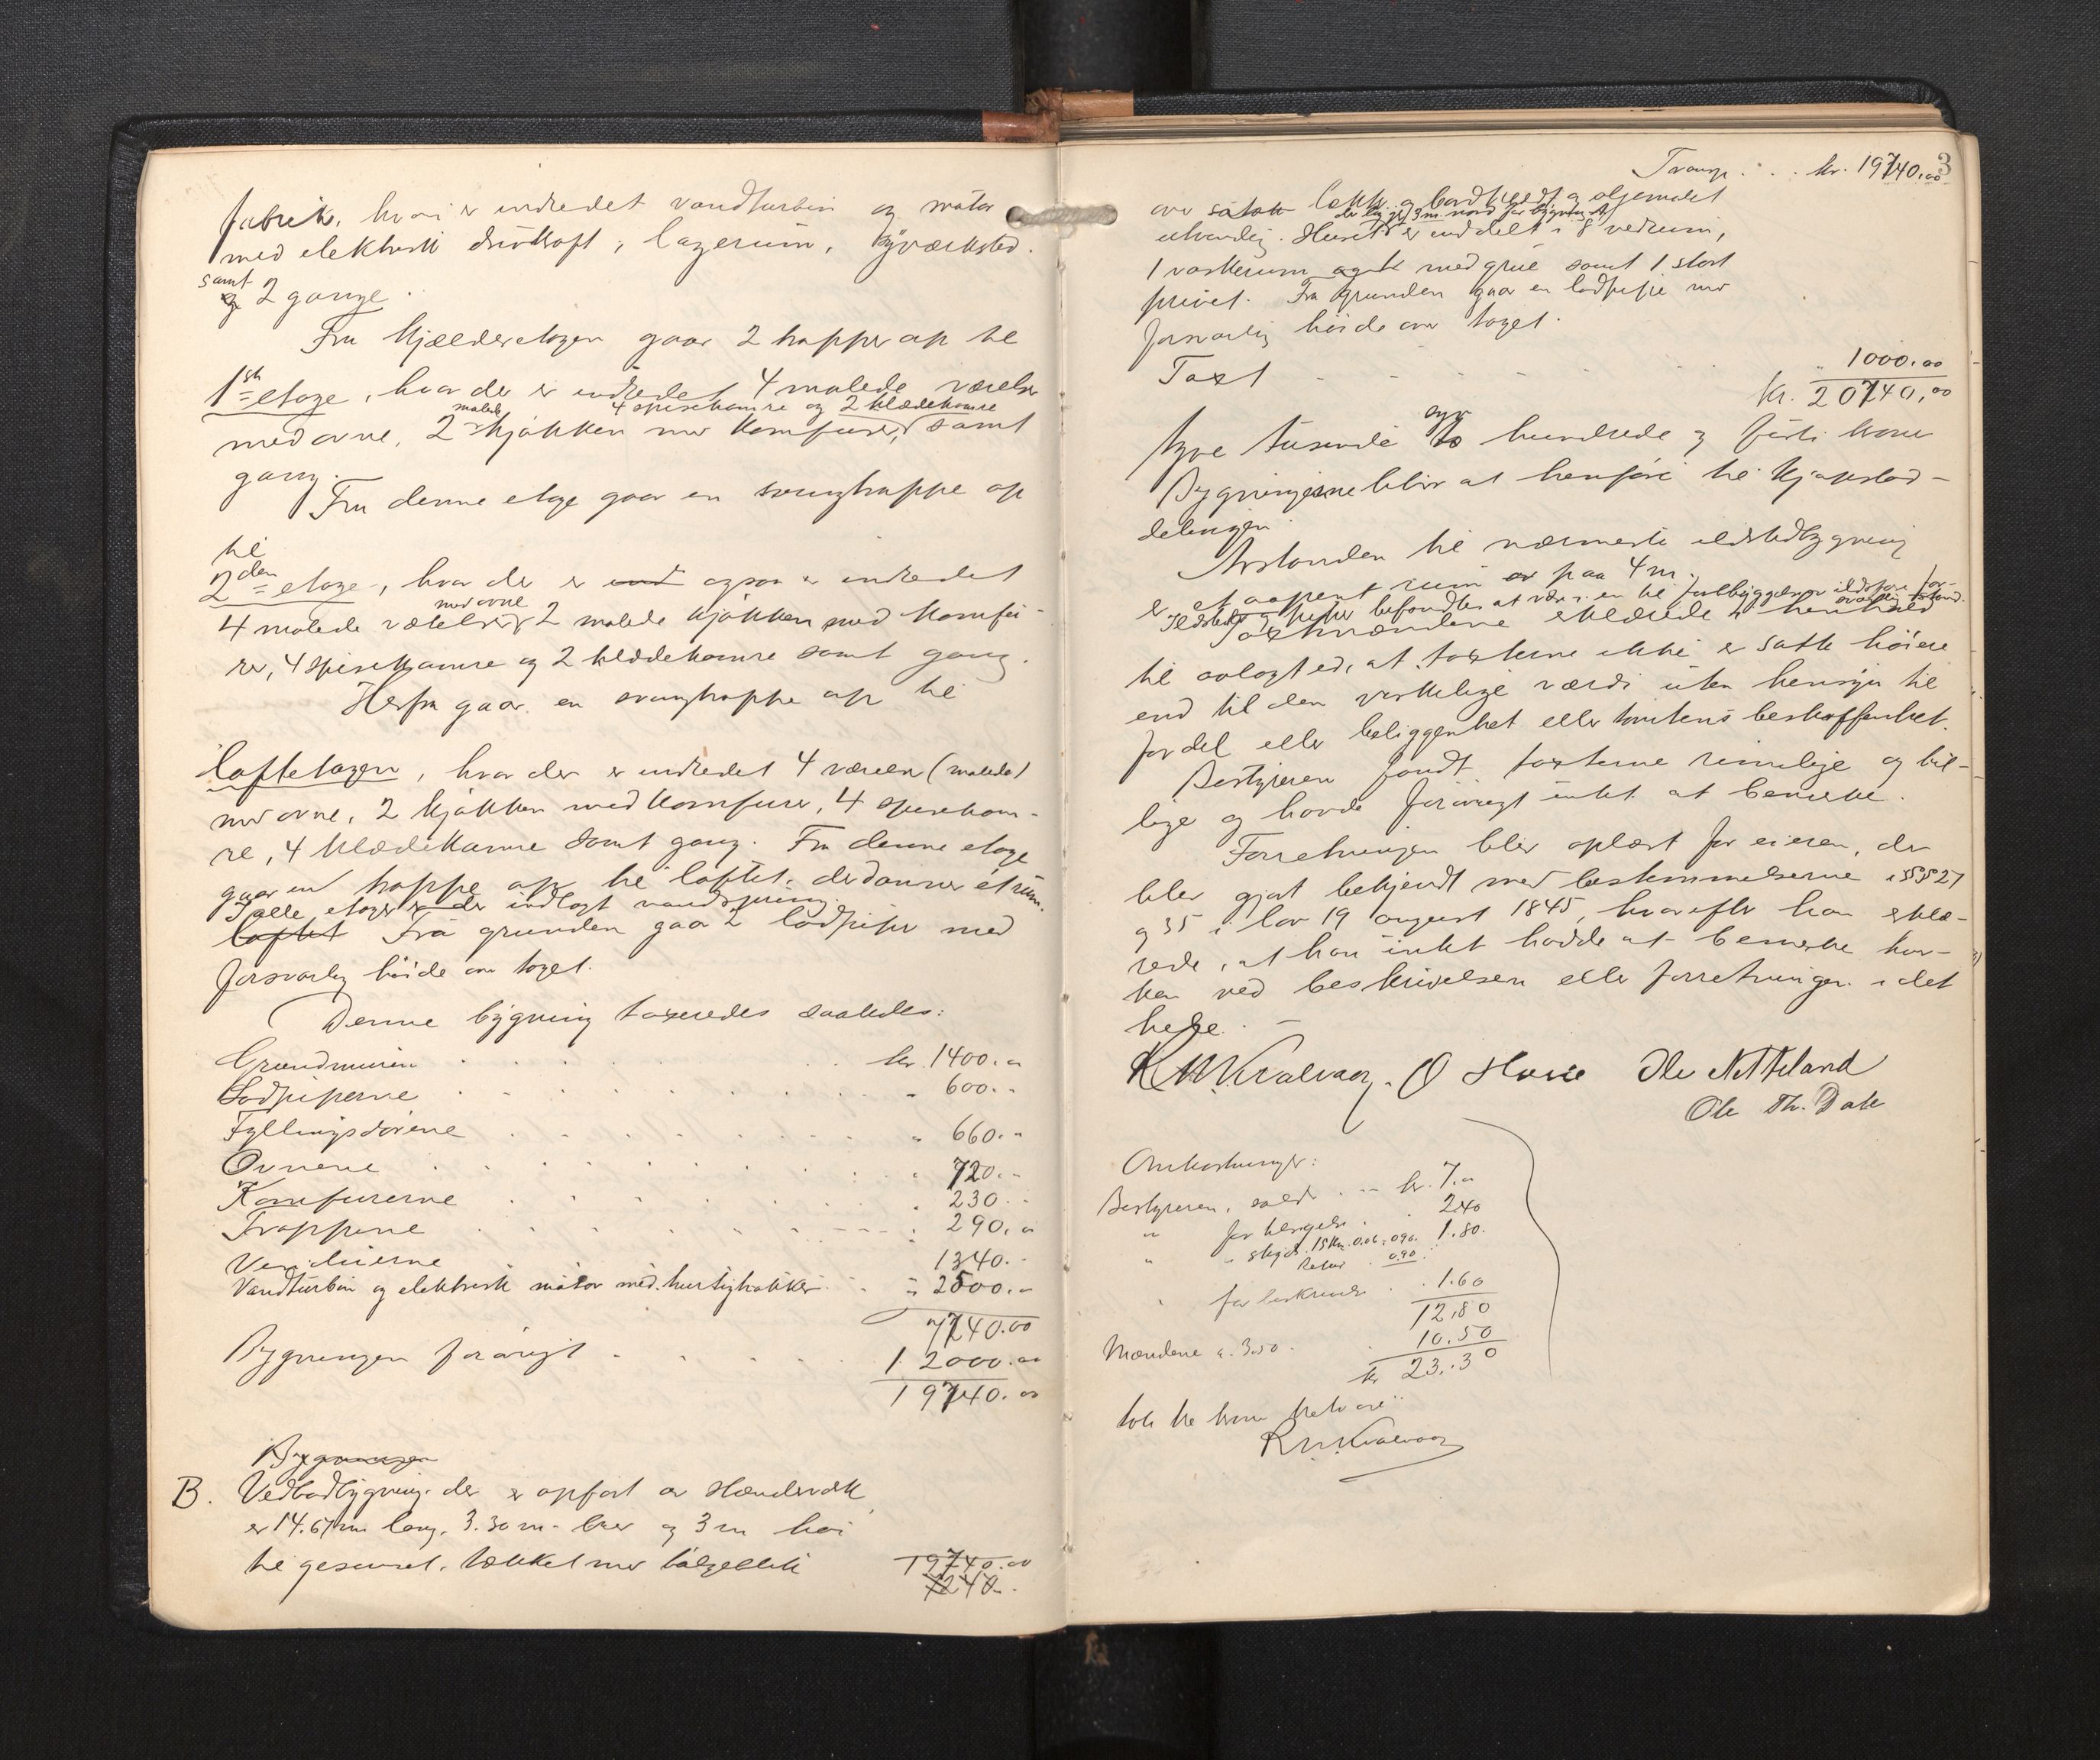 fabrik, hvori er indredet vandturbin og motor
med elektrisk drivkraft, lagerum, syværksted.
samt
og 2 gange.
Fra kjælderetagen gaar 2 trapper op til
1ste etage, hvor der er indredet 4 malede værelser
malede 4 spisekamre og 2 klædekamre
med ovne, 2 kjøkken med komfurer, samt
gang.
Fra denne etage gaar en svingtrappe op
til
2den etage, hvor der er ind ogsaa er indredet
med ovne
4 malede værelser, 2 malede kjøkken med komfu-
rer, 4 spisekamre og 2 klædekamre samt gang.
Herfra gaar en svingtrappe op til
loftetagen, hvor der er indredet 4 værelser (malede)
med ovne, 2 kjøkken med komfurer, 4 spisekam-
re, 4 klædekamre samt gang. Fra denne etage
gaar en trappe op til loftet, der danner et rum.
I alle etager er der indlagt vandspring.
loftet Fra grunden gaar 2 lodpiper med
forsvarlig høide over taget.
Denne bygning taxeredes saaledes:
Grundmuren . . . kr. 1400.00
Lodpiperne . . . " 600.-
Fyllingsdørene . . . " 660.-
Ovnene . . . " 720.-
Komfurerne . . . " 230.-
Trapperne . . . " 290.00
Vinduerne 1340.-
Vandturbin og elektrisk motor med hurtigtrækker . . " 2500.-
7740.00
Bygningen forøvrigt . . . 12000.00
19740.00
Bygningen
B. Vedbodbygning, der er opført av stænderværk
er 14.67 m lang, 3.30 m. bred og 3 m høi
til gesimset, tækket med bølgeblik
19740.00
7240.-
3
Transp. . . kr. 19740.00
der lig 3 m. nord for bygning A
utvendig. Huset er inddelt i 8 vedrum,
1 vaskerum med grue samt 1 stort
privet. Fra grunden gaar en lodpipe med
forsvarlig høide over taget.
Taxt . . . " 1000.00
Kr. 20740,00
syv
tyve tusinde to hundrede og firti kroner
Bygningerne blir at henføre til kjøpstad-
delingen.
Avstanden til nærmeste ildstedbygning
er et aapent rum av paa 4 m.
Ildsteder og piper befandtes at være i en til forebyggelse av ildsfare for-
svarlig stand.
Taxtmændene erklærede i henhold
til avlagt ed, at taxterne ikke er satte høiere
end til den virkelige værdi uten hensyn til
fordel eller beliggenhet eller tomtens beskaffenhet.
Bestyreren fandt taxterne rimelige og bil-
lige og havde forøvrigt intet at bemerke.
Forretningen blev oplæst for eieren, der
blev gjort bekjendt med bestemmelserne i §§ 27
og 35 i lov 19 august 1845, hvorefter han erklæ-
rede, at han intet hadde at bemerke hver-
ken ved beskrivelsen eller forretningen i det
hele. -
R. M. Kvalvaag. O Hovse Ole Netteland
Ole Th. Dale
Omkostninger:
Bestyreren, salær . -- kr. 7.00
" for . 2.40
" " skyds 15 Km. 0.06 = 0.90. 1.80.
Retur . 0.90 .
" for beskrivelse . . 1.60
12,80
Mændene a. 3.50 . 10.50
kr 23.30
R. M. Kvalvaag